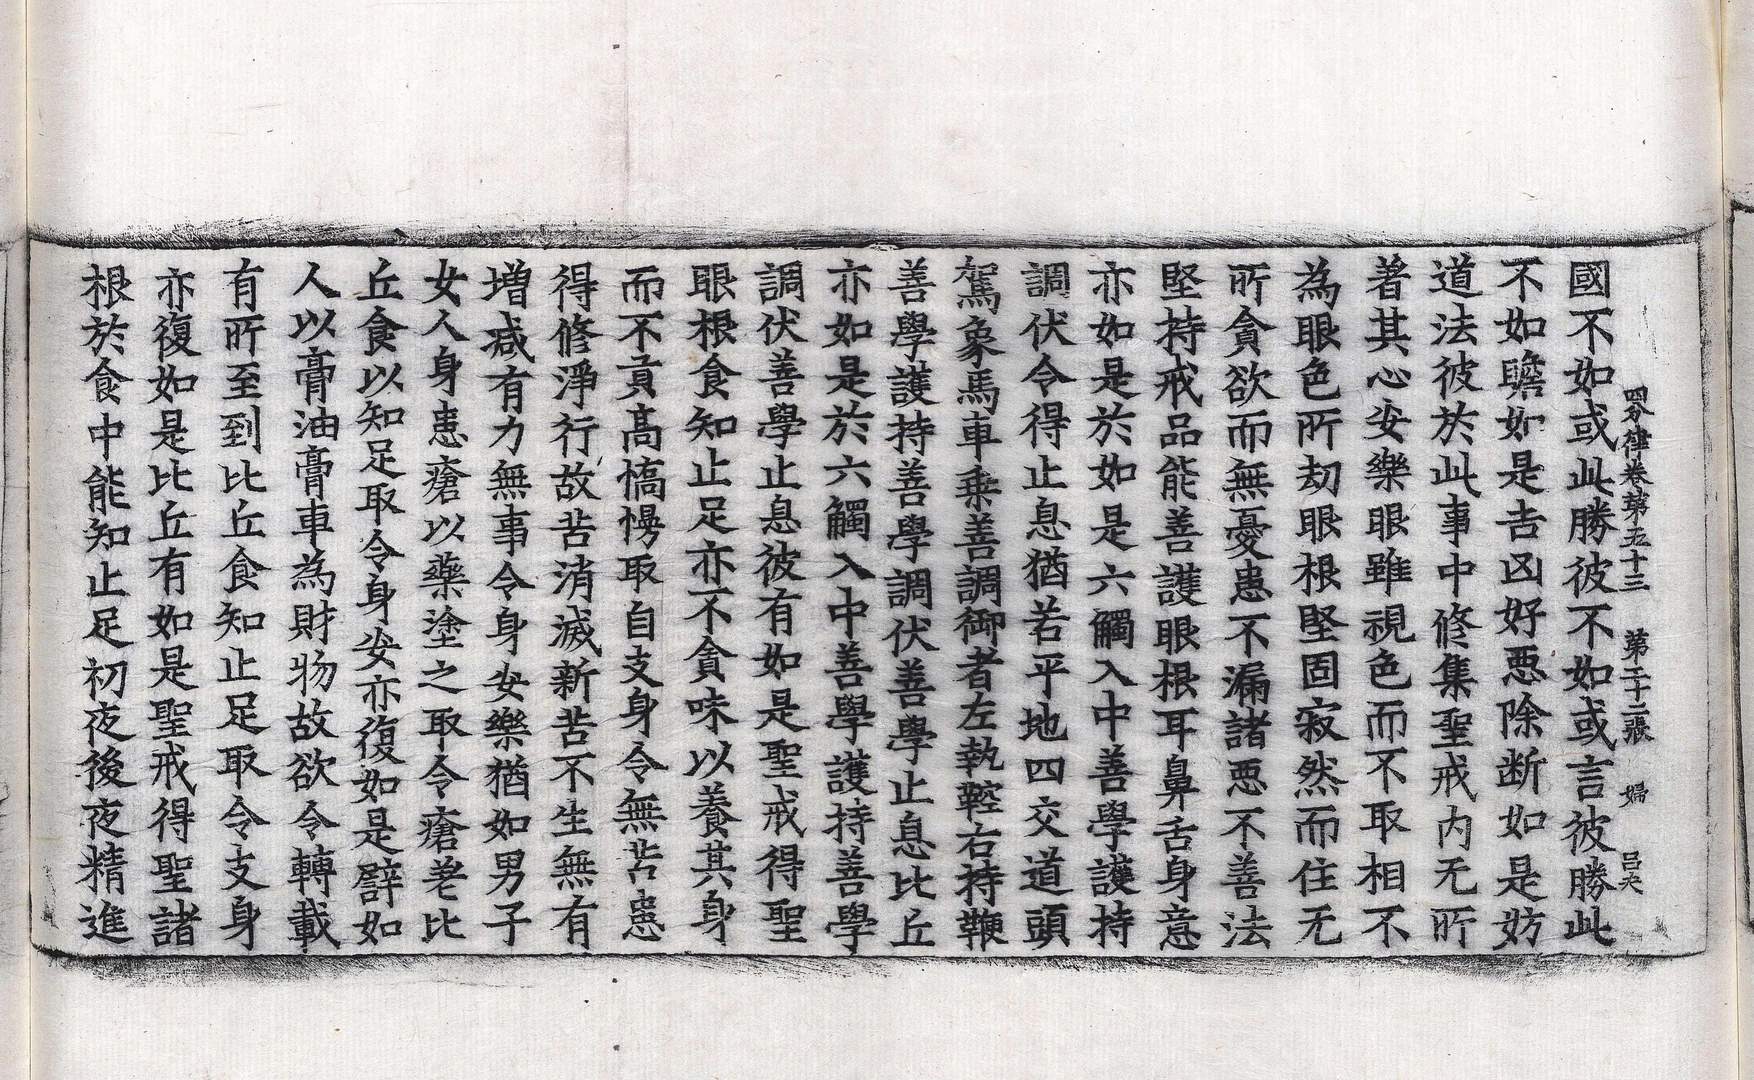 四分律卷第五十三　第二十二張　婦　呂夫
國不如或此勝彼不如或言彼勝此
不如瞻如是吉凶好惡除斷如是妨
道法彼於此事中修集聖戒内无所
著其心安樂眼雖視色而不取相不
為眼色所劫眼根堅固寂然而住无
所貪欲而無憂患不漏諸惡不善法
堅持戒品能善護眼根耳鼻舌身意
亦如是於如是六觸入中善學護持
調伏令得止息猶若平地四交道頭
駕象馬車乗善調御者左執鞚右持鞭
善學護持善學調伏善學止息比丘
亦如是於六觸入中善學護持善學
調伏善學止息彼有如是聖戒得聖
眼根食知止足亦不貪味以養其身
而不貢高憍慢取自支身令無苦患
得修淨行故苦消滅新苦不生無有
増减有力無事令身安樂猶如男子
女人身患瘡以藥塗之取令瘡差比
丘食以知足取令身安亦復如是譬如
人以膏油膏車為財物故欲令轉載
有所至到比丘食知止足取令支身
亦復如是比丘有如是聖戒得聖諸
根於食中能知止足初夜後夜精進